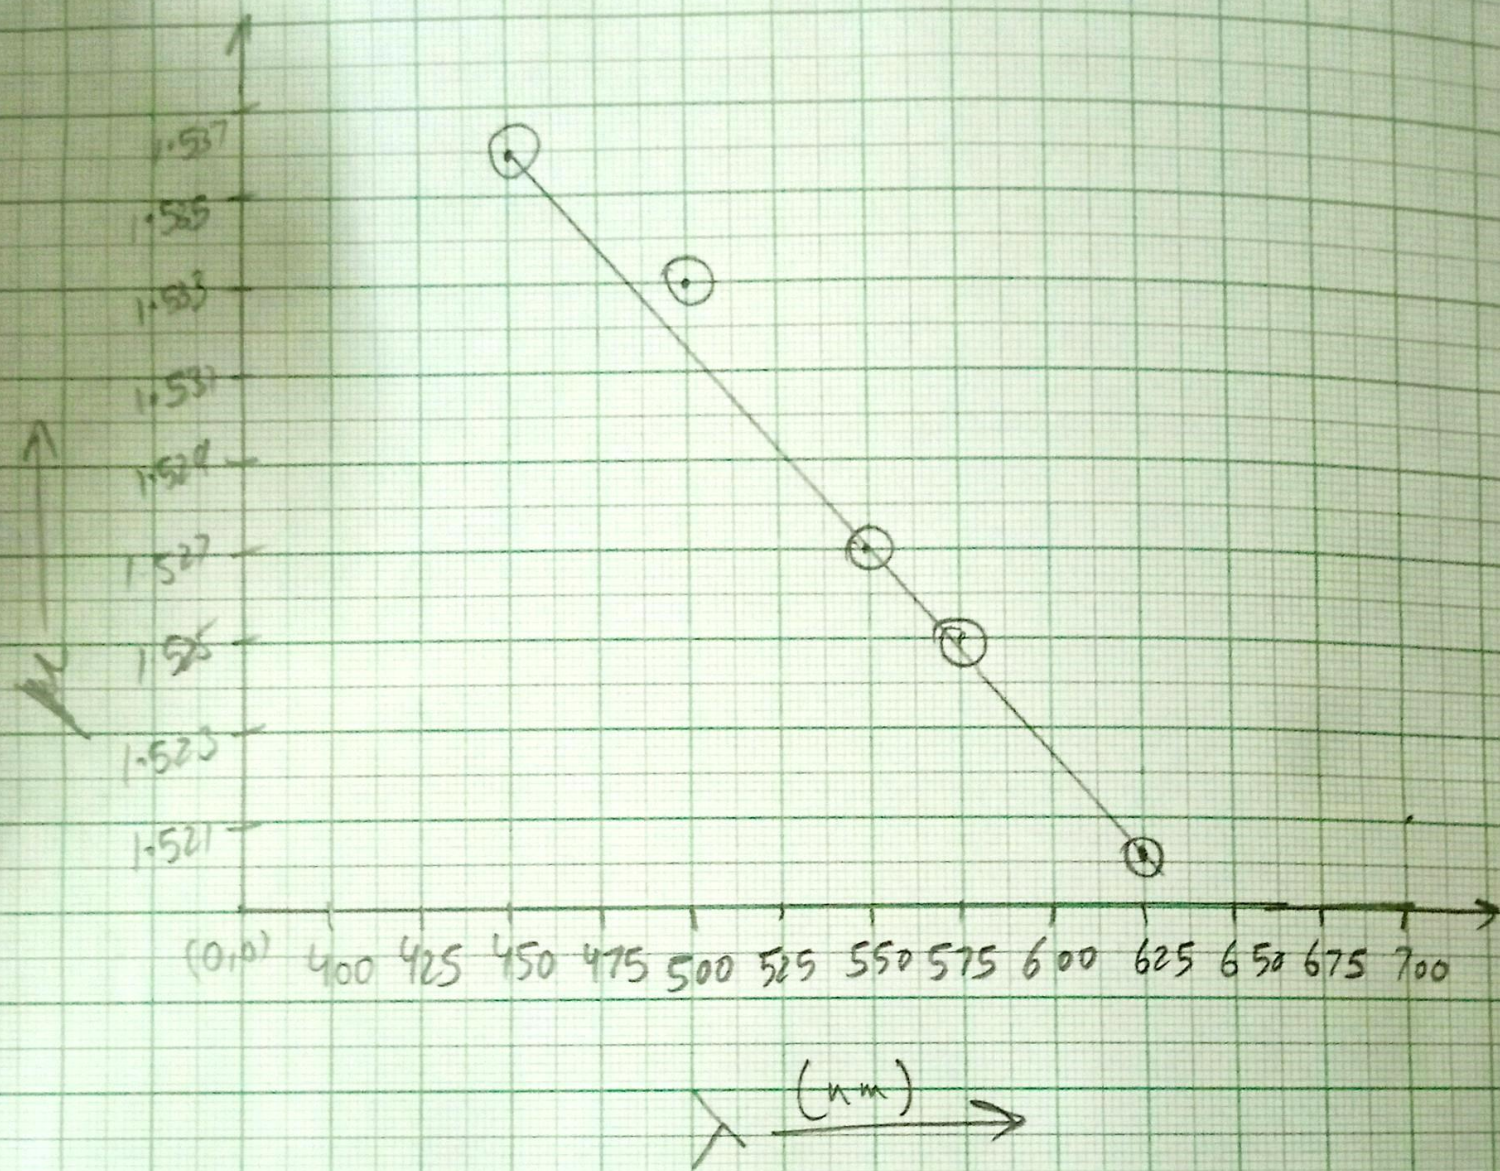 1.537
1.535
1.533
1.531
1.529
1.527
1.525
1.523
1.521
(0,0) 400 425 450 475 500 525 550 575 600 625 650 675 700
μ
λ (nm)